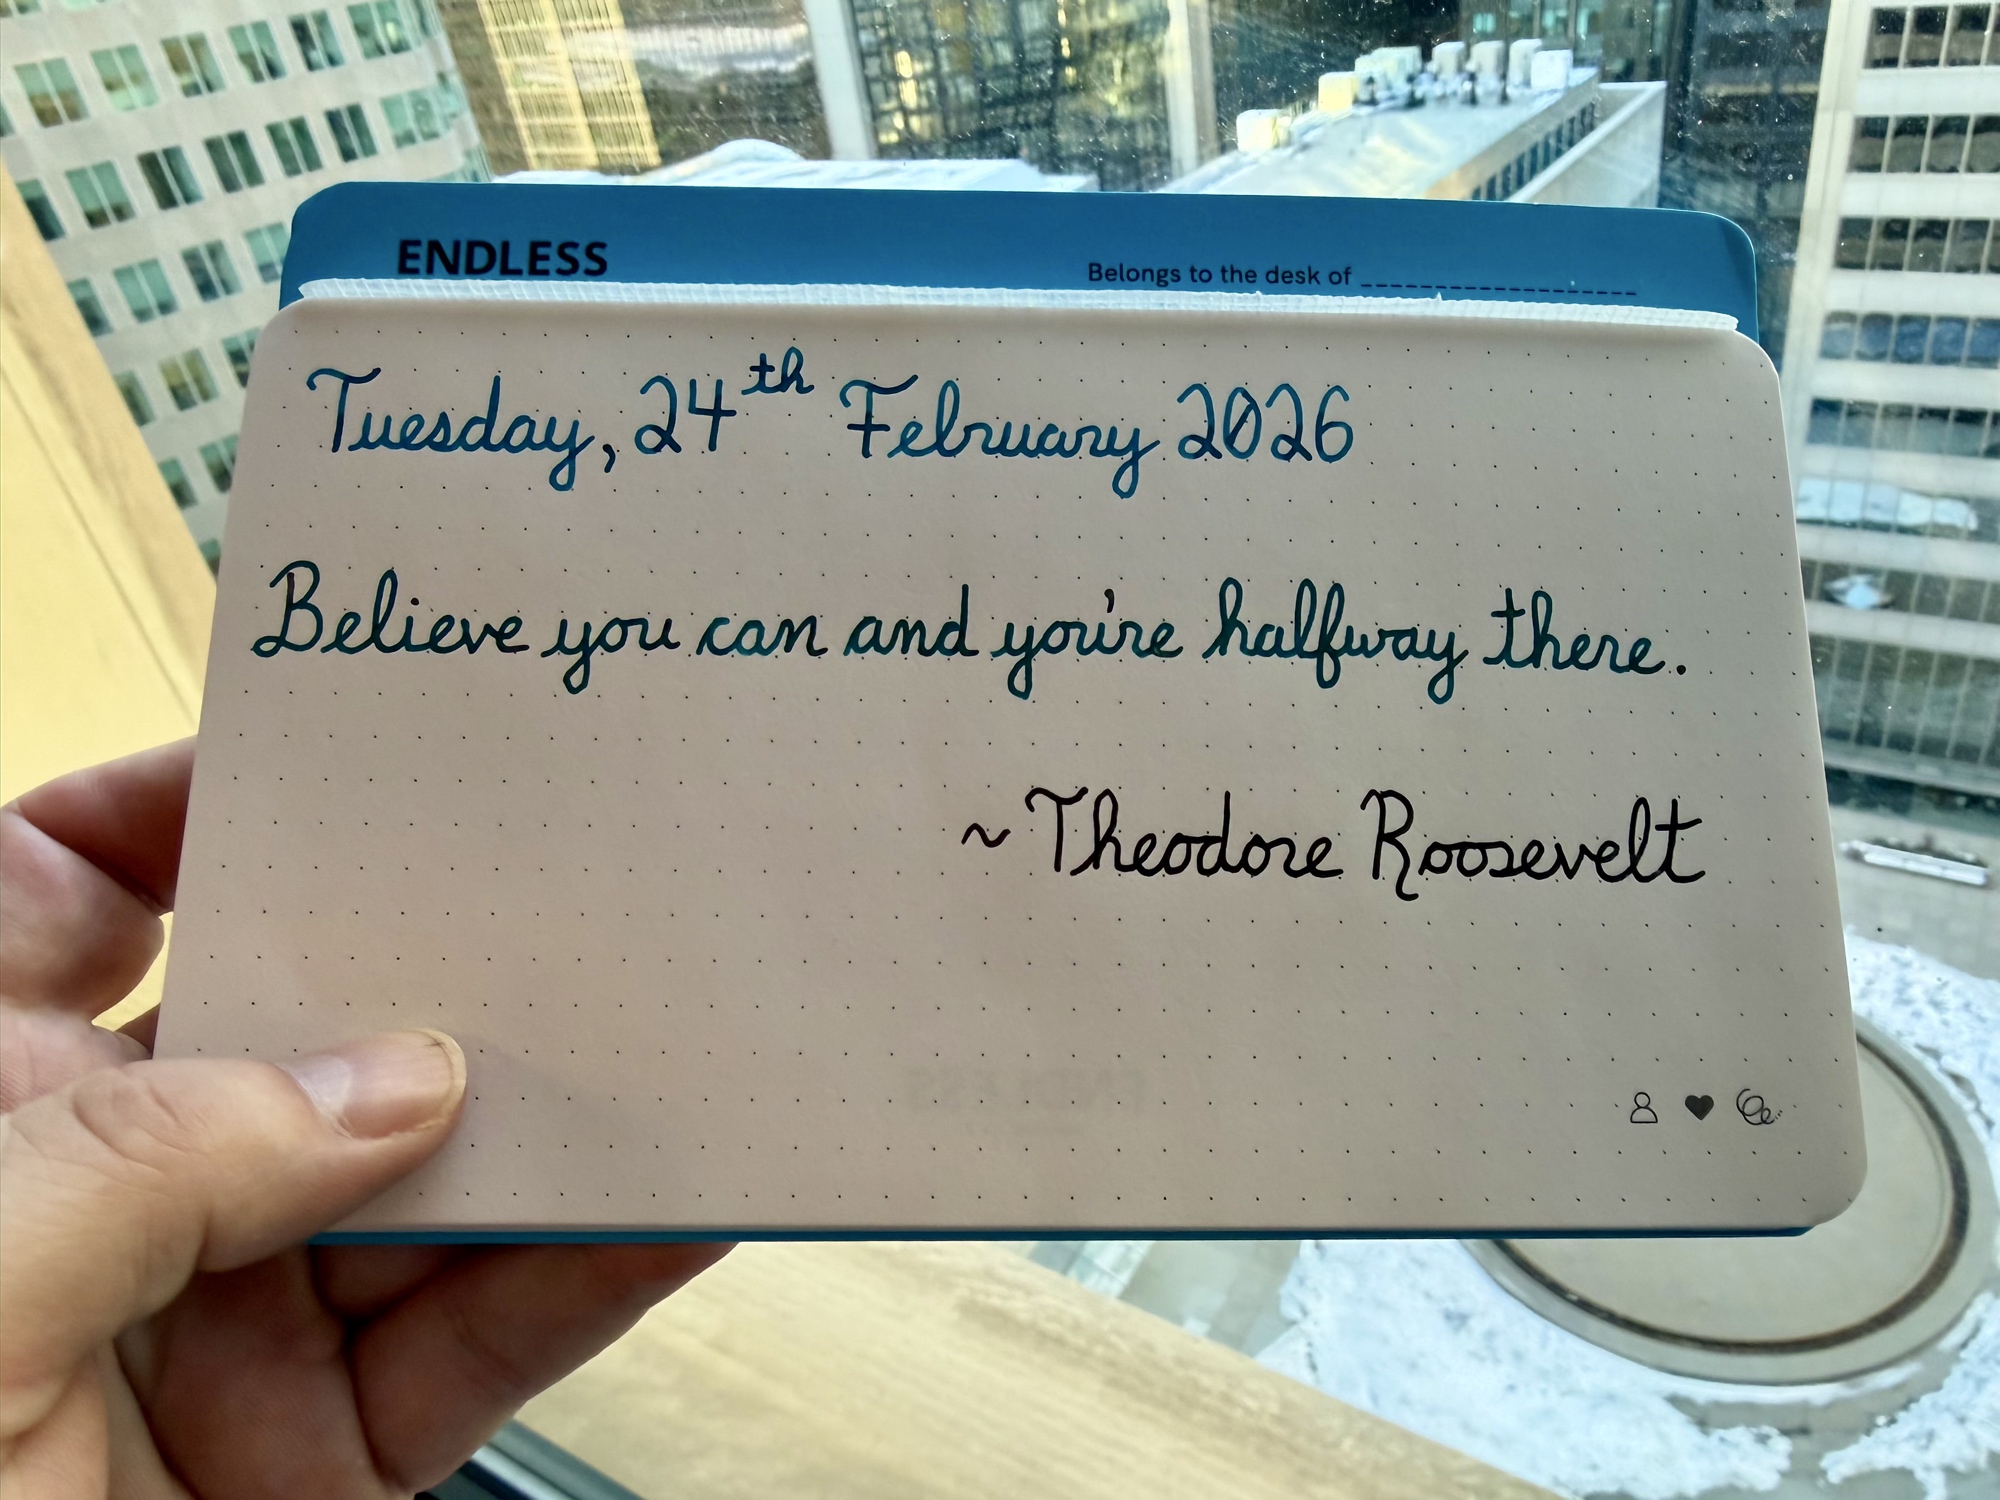 ENDLESS
Belongs to the desk of ____________________
Tuesday, 24th February 2026
Believe you can and you're halfway there.
~ Theodore Roosevelt